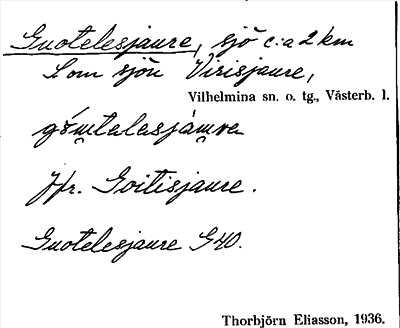 Guotelesjaure, sjö c:a 2 km
S om sjön Virisjaure,
Vilhelmina sn. o. tg., Västerb. l.
Jfr. Goitisjaure.
Guotelesjaure G40.
Thorbjörn Eliasson, 1936.